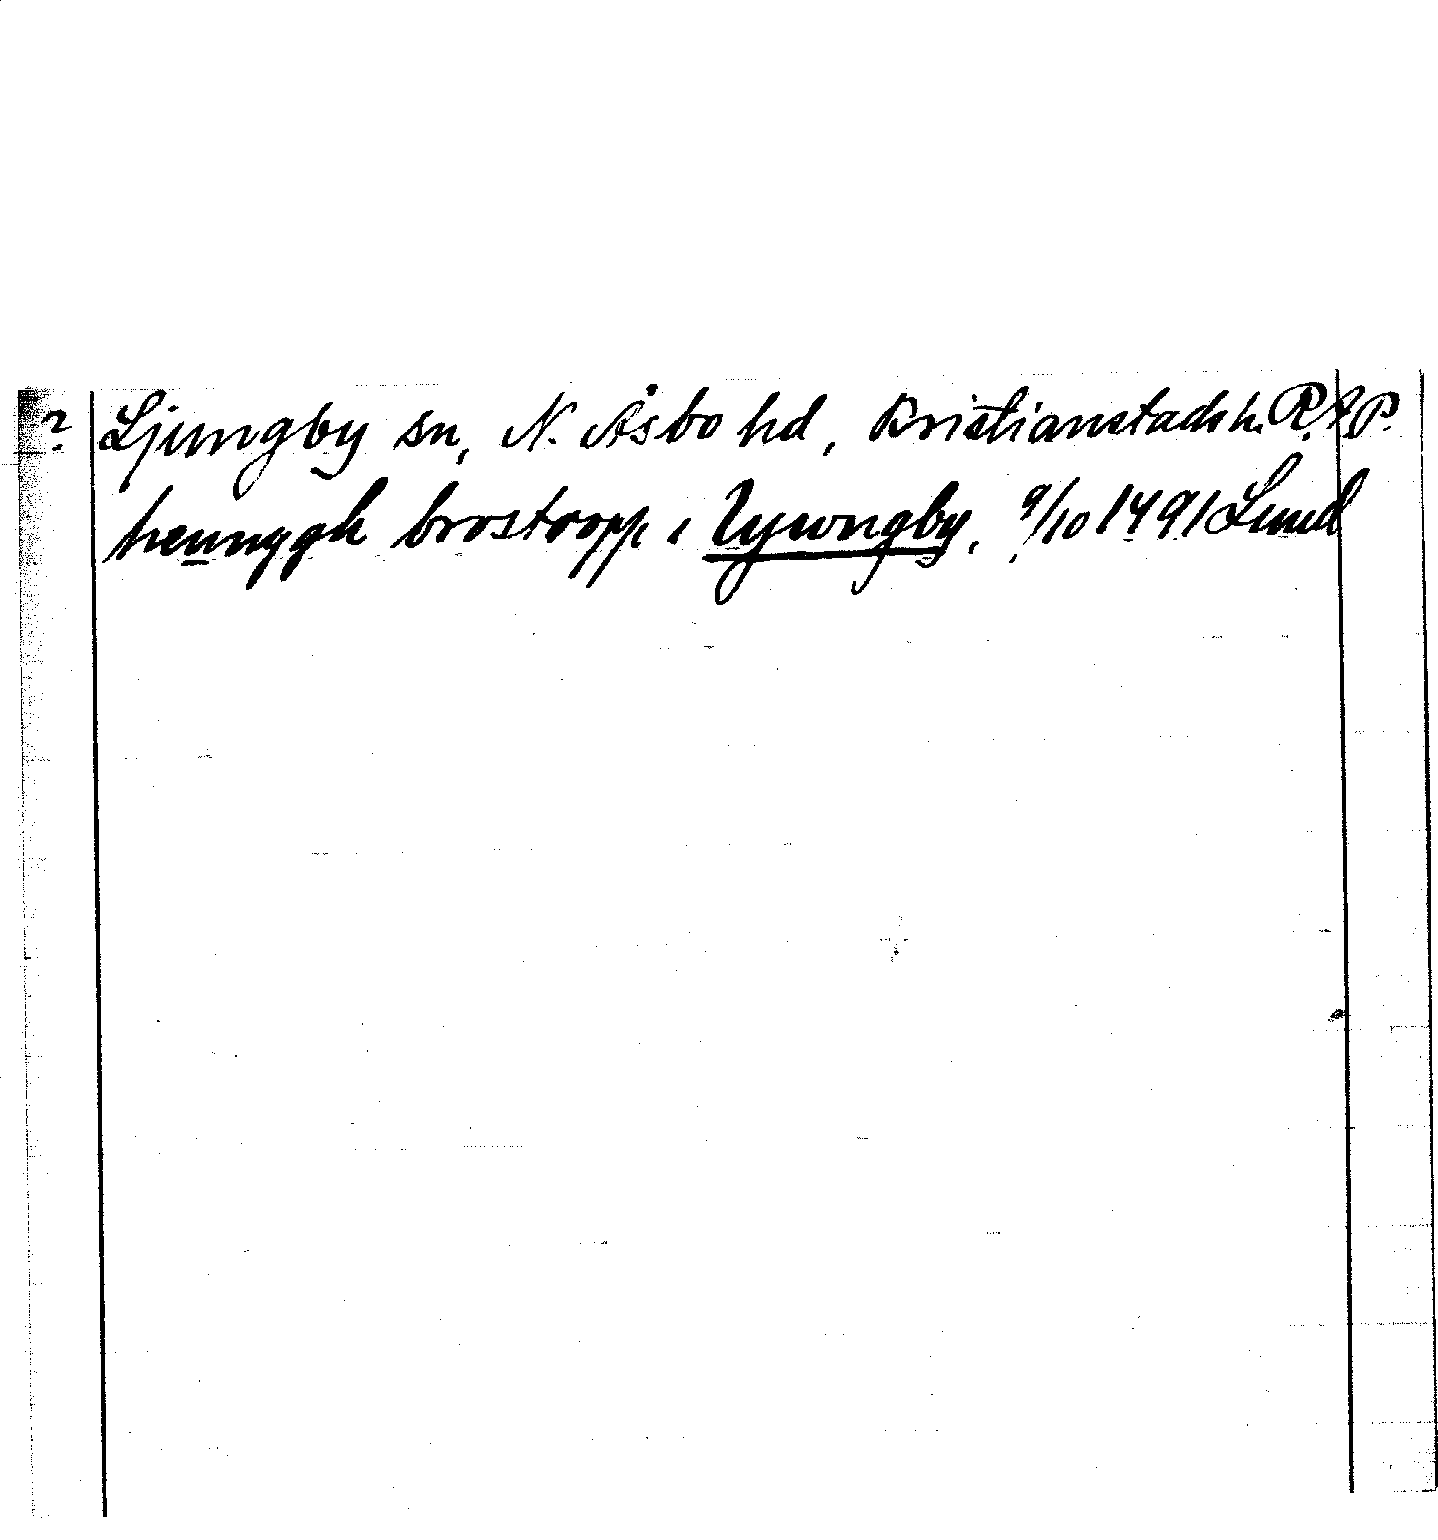 ? Ljungby sn, N. Åsbo hd, Kristianstads l. RAP.
hennygh brostropp i lywngby, 9/10 1491 Lund